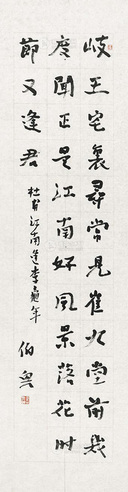 岐王宅裏尋常見崔九堂前幾
度聞正是江南好風景落花時
節又逢君
杜甫江南逢李龜年
伯